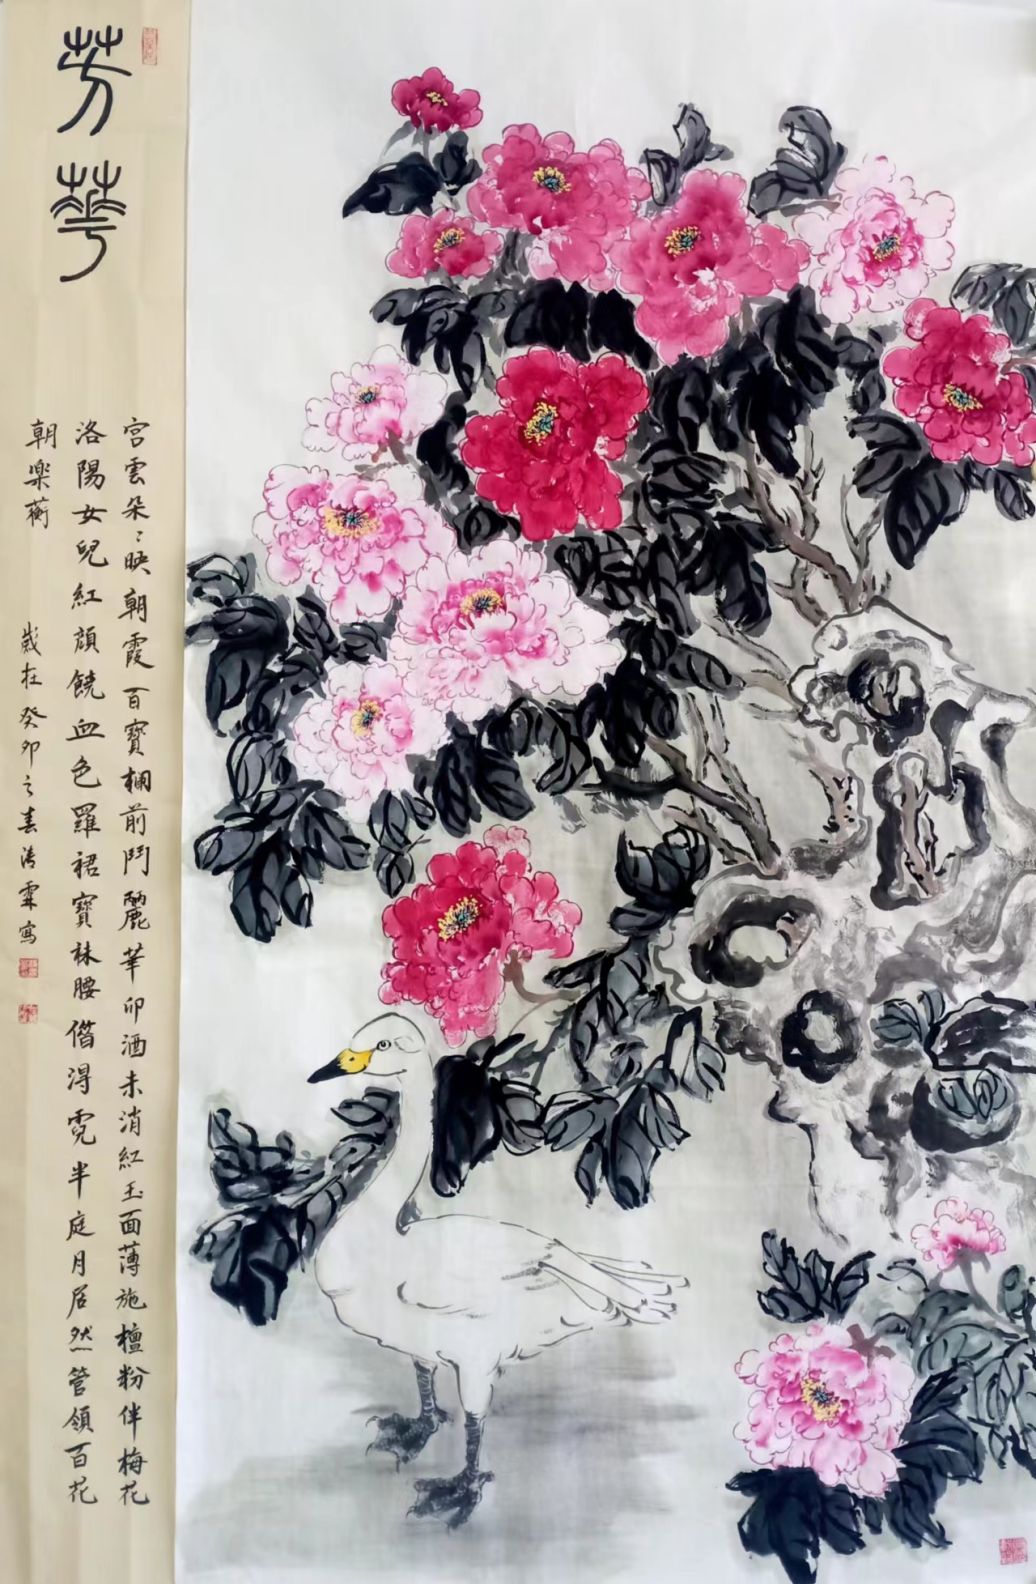 芳華
宮雲朵〻映朝霞百寶欄前鬥麗華卯酒未消紅玉面薄施檀粉伴梅花
洛陽女兒紅顔饒血色羅裙寶袜腰借得霓半庭月居然管領百花
朝樂蘅
歲在癸卯之春清霖寫